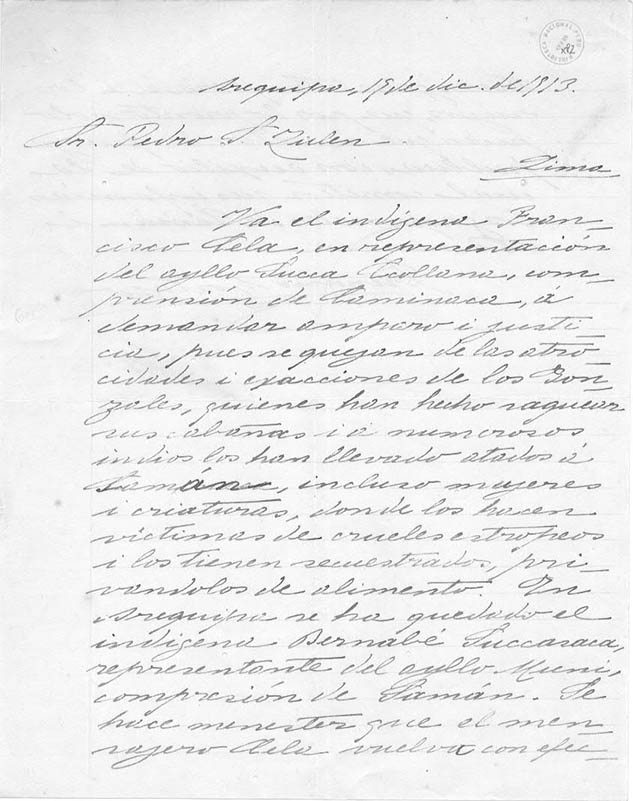 BIBLIOTECA NACIONAL PERU
Arequipa, 19 de dic. de 1913.
Sr. Pedro S. Zulen
Lima
Va el indígena Fran-
cisco Cela, en representación
del ayllo Succa Ccollana, com-
prensión de Caminaca, á
demandar amparo i justi-
cia, pues se quejan de las atro-
cidades i exacciones de los Gon-
zales, quienes han hecho saquear
sus cabañas i a numerosos
indios los han llevado atados á
Samán, incluso mujeres
i criaturas, donde los hacen
víctimas de crueles estropeos
i los tienen secuestrados, pri-
vandolos de alimento. En
Arequipa se ha quedado el
indigena Bernabé Succasaca,
representante del ayllo Muni,
compresión de Samán. Se
hace menester que el men-
sajero Cela vuelva con efec-